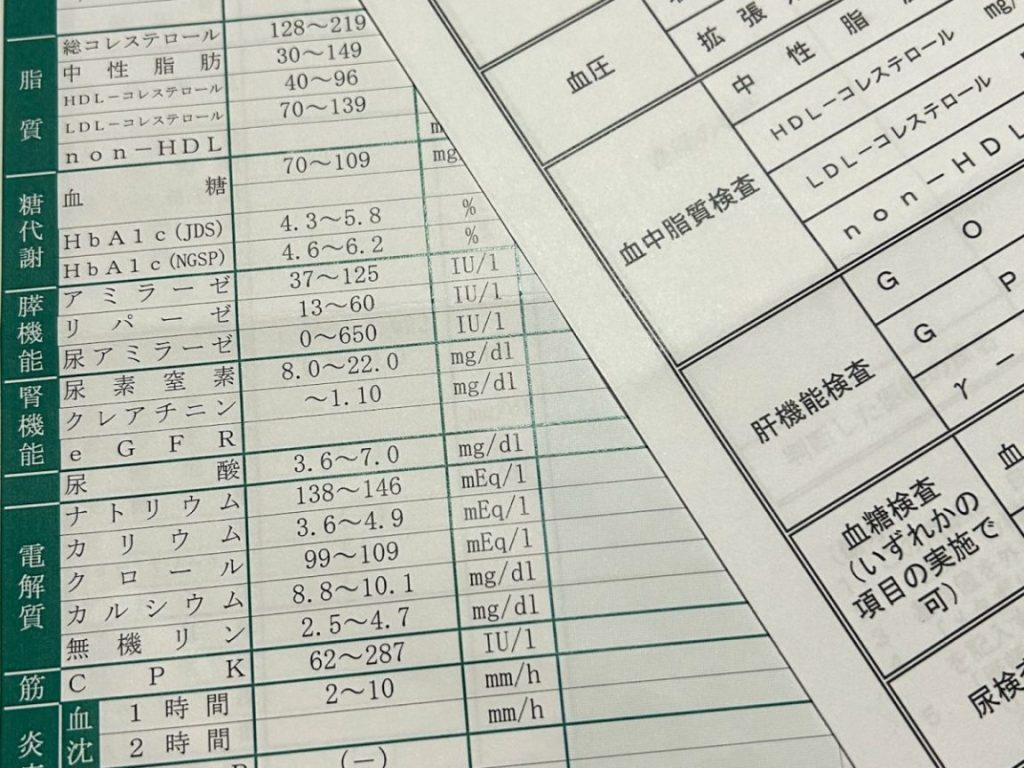 脂質
総コレステロール 128～219
中性脂肪 30～149
HDL－コレステロール 40～96
LDL－コレステロール 70～139
non－HDL
糖代謝
血糖 70～109 mg
HbA1c(JDS) 4.3～5.8 %
HbA1c(NGSP) 4.6～6.2 %
膵機能
アミラーゼ 37～125 IU/l
リパーゼ 13～60 IU/l
尿アミラーゼ 0～650 IU/l
腎機能
尿素窒素 8.0～22.0 mg/dl
クレアチニン ～1.10 mg/dl
eGFR
尿酸 3.6～7.0 mg/dl
電解質
ナトリウム 138～146 mEq/l
カリウム 3.6～4.9 mEq/l
クロール 99～109 mEq/l
カルシウム 8.8～10.1 mg/dl
無機リン 2.5～4.7 mg/dl
筋
CPK 62～287 IU/l
炎
血沈
1時間 2～10 mm/h
2時間 mm/h
(－)
血圧
拡張
血中脂質検査
中性脂 mg/
HDL－コレステロール
LDL－コレステロール
non－HDL
肝機能検査
GO
GP
γ－
血糖検査
(いずれかの
項目の実施で
可)
血
尿検査